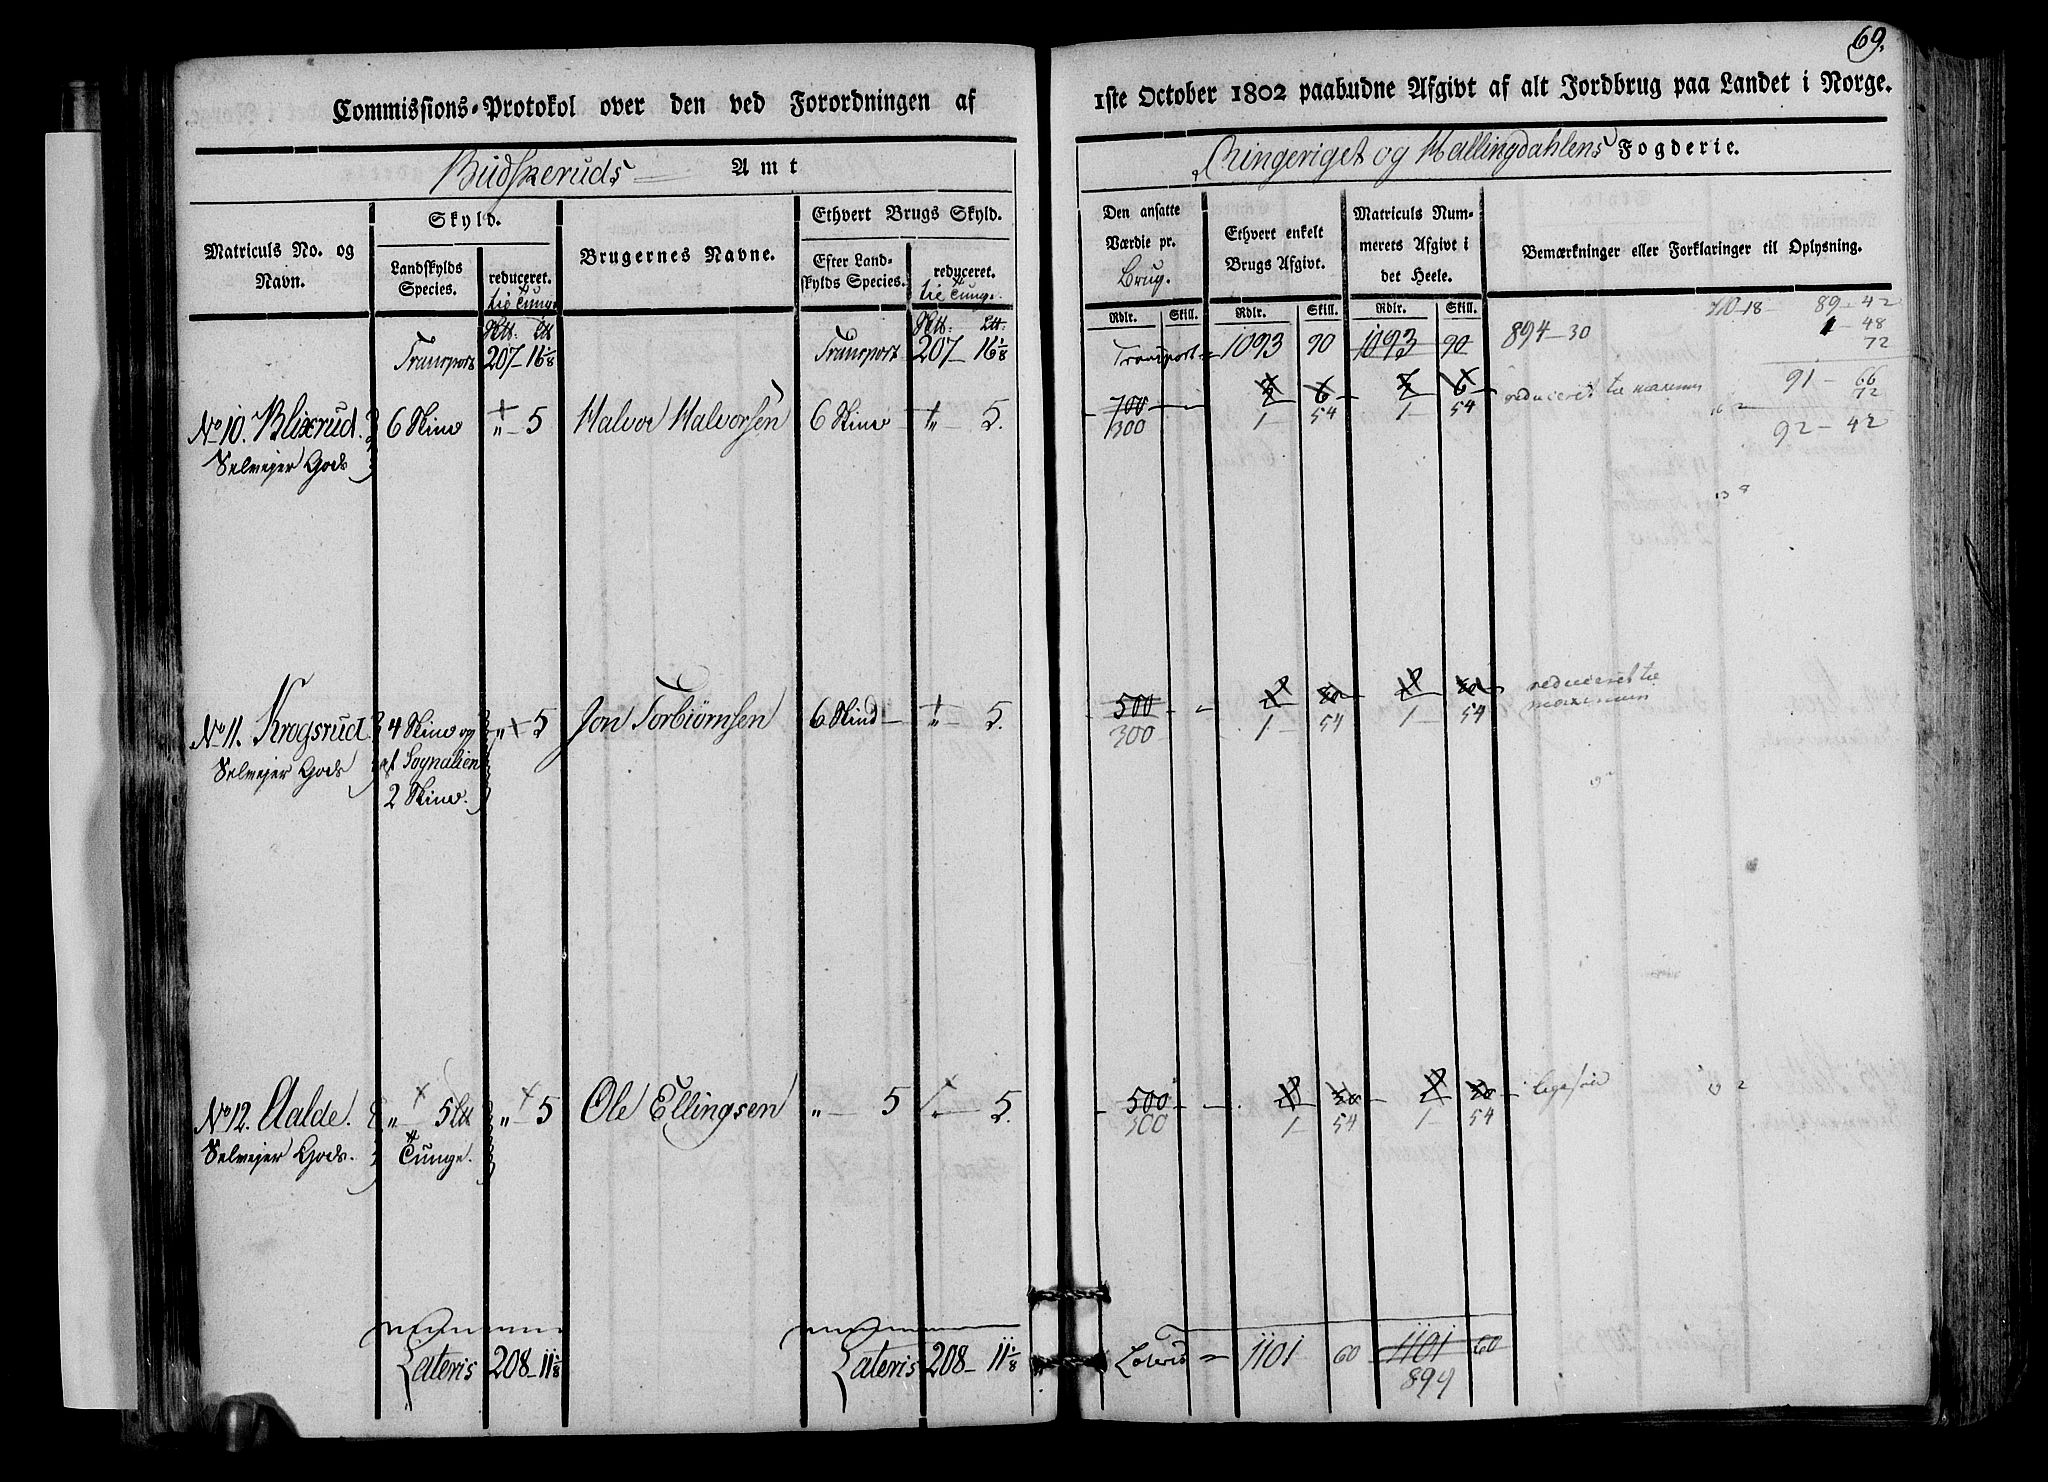 69.
Commissions-Protokol over den ved Forordningen af
1ste October 1802 paabudne Afgivt af alt Jordbrug paa Landet i Norge.
Budskeruds Amt
Ringeriget og Hallingdahlens Fogderie.
Matriculs No. og Navn.
Skyld.
Landskylds Species.
reduceret.
til Tunge
Brugernes Navne.
Ethvert Brugs Skyld.
Efter Landskylds Species.
reduceret.
til Tunge
Den ansatte Værdie pr. Brug.
Rdlr. Skill.
Ethvert enkelt Brugs Afgivt.
Rdlr. Skill.
Matriculs Nummerets Afgivt i det Heele.
Rdlr. Skill.
Bemærkninger eller Forklaringer til Oplysning.
Transport 207 - 16 1/8 Transport 207 - 16 1/8 Transport 1093 90 1093 90 894 - 30
710-18- 89 - 42
1 - 48
72
91 - 66
72
92 - 42
No 10. Blixrud. 6 Skind " - 5 Halvor Halvorsen 6 Skind " - 5. 700 2 6 2 6 reduceret til maximum
Selvejer Gods 300 1 - 54 1 - 54
No 11. Krogsrud 4 Skind og " - 5 Jon Torbiørnsen 6 Skind " - 5. 500 reduceret til maximum
Selvejer Gods af Sognalien 300 1 - 54 1 - 54
2 Skind.
No 12. Aalde. " - 5 " - 5 Ole Ellingsen " - 5 - 5. 500
Selvejer Gods. Tunge. 300 1 - 54 1 - 54
Lateris 208 - 11 1/8 Lateris 208 - 11 1/8 Lateris 1101 60 1101 60
894